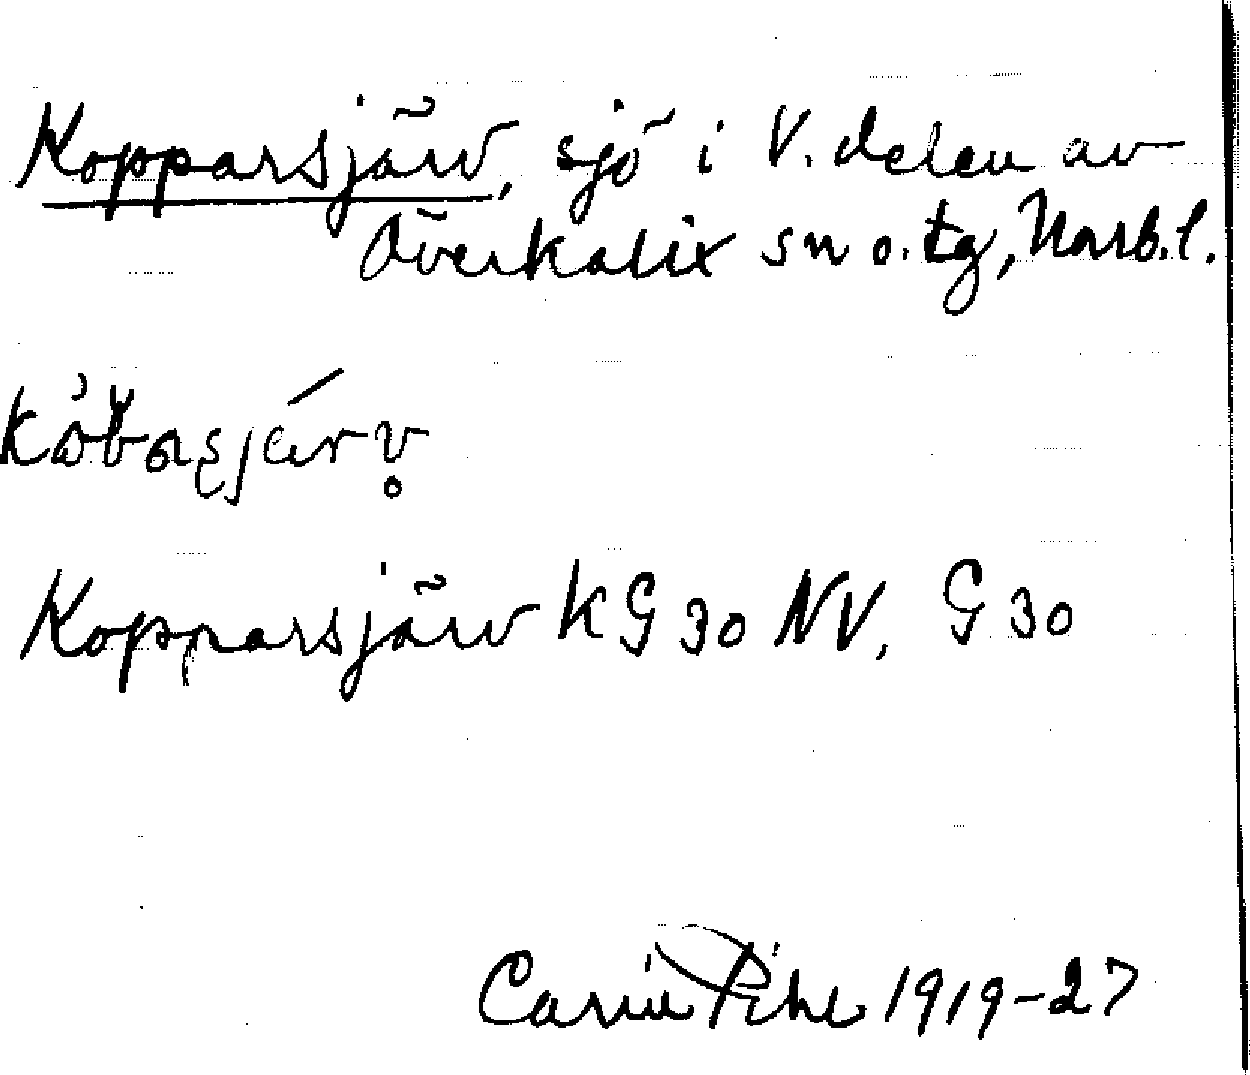 Kopparsjärv, sjö i V. delen av
Överkalix sn o. tg, Norrb. l.
Kopparsjärv KG 30 NV, G 30
Carin Pihl 1919-27